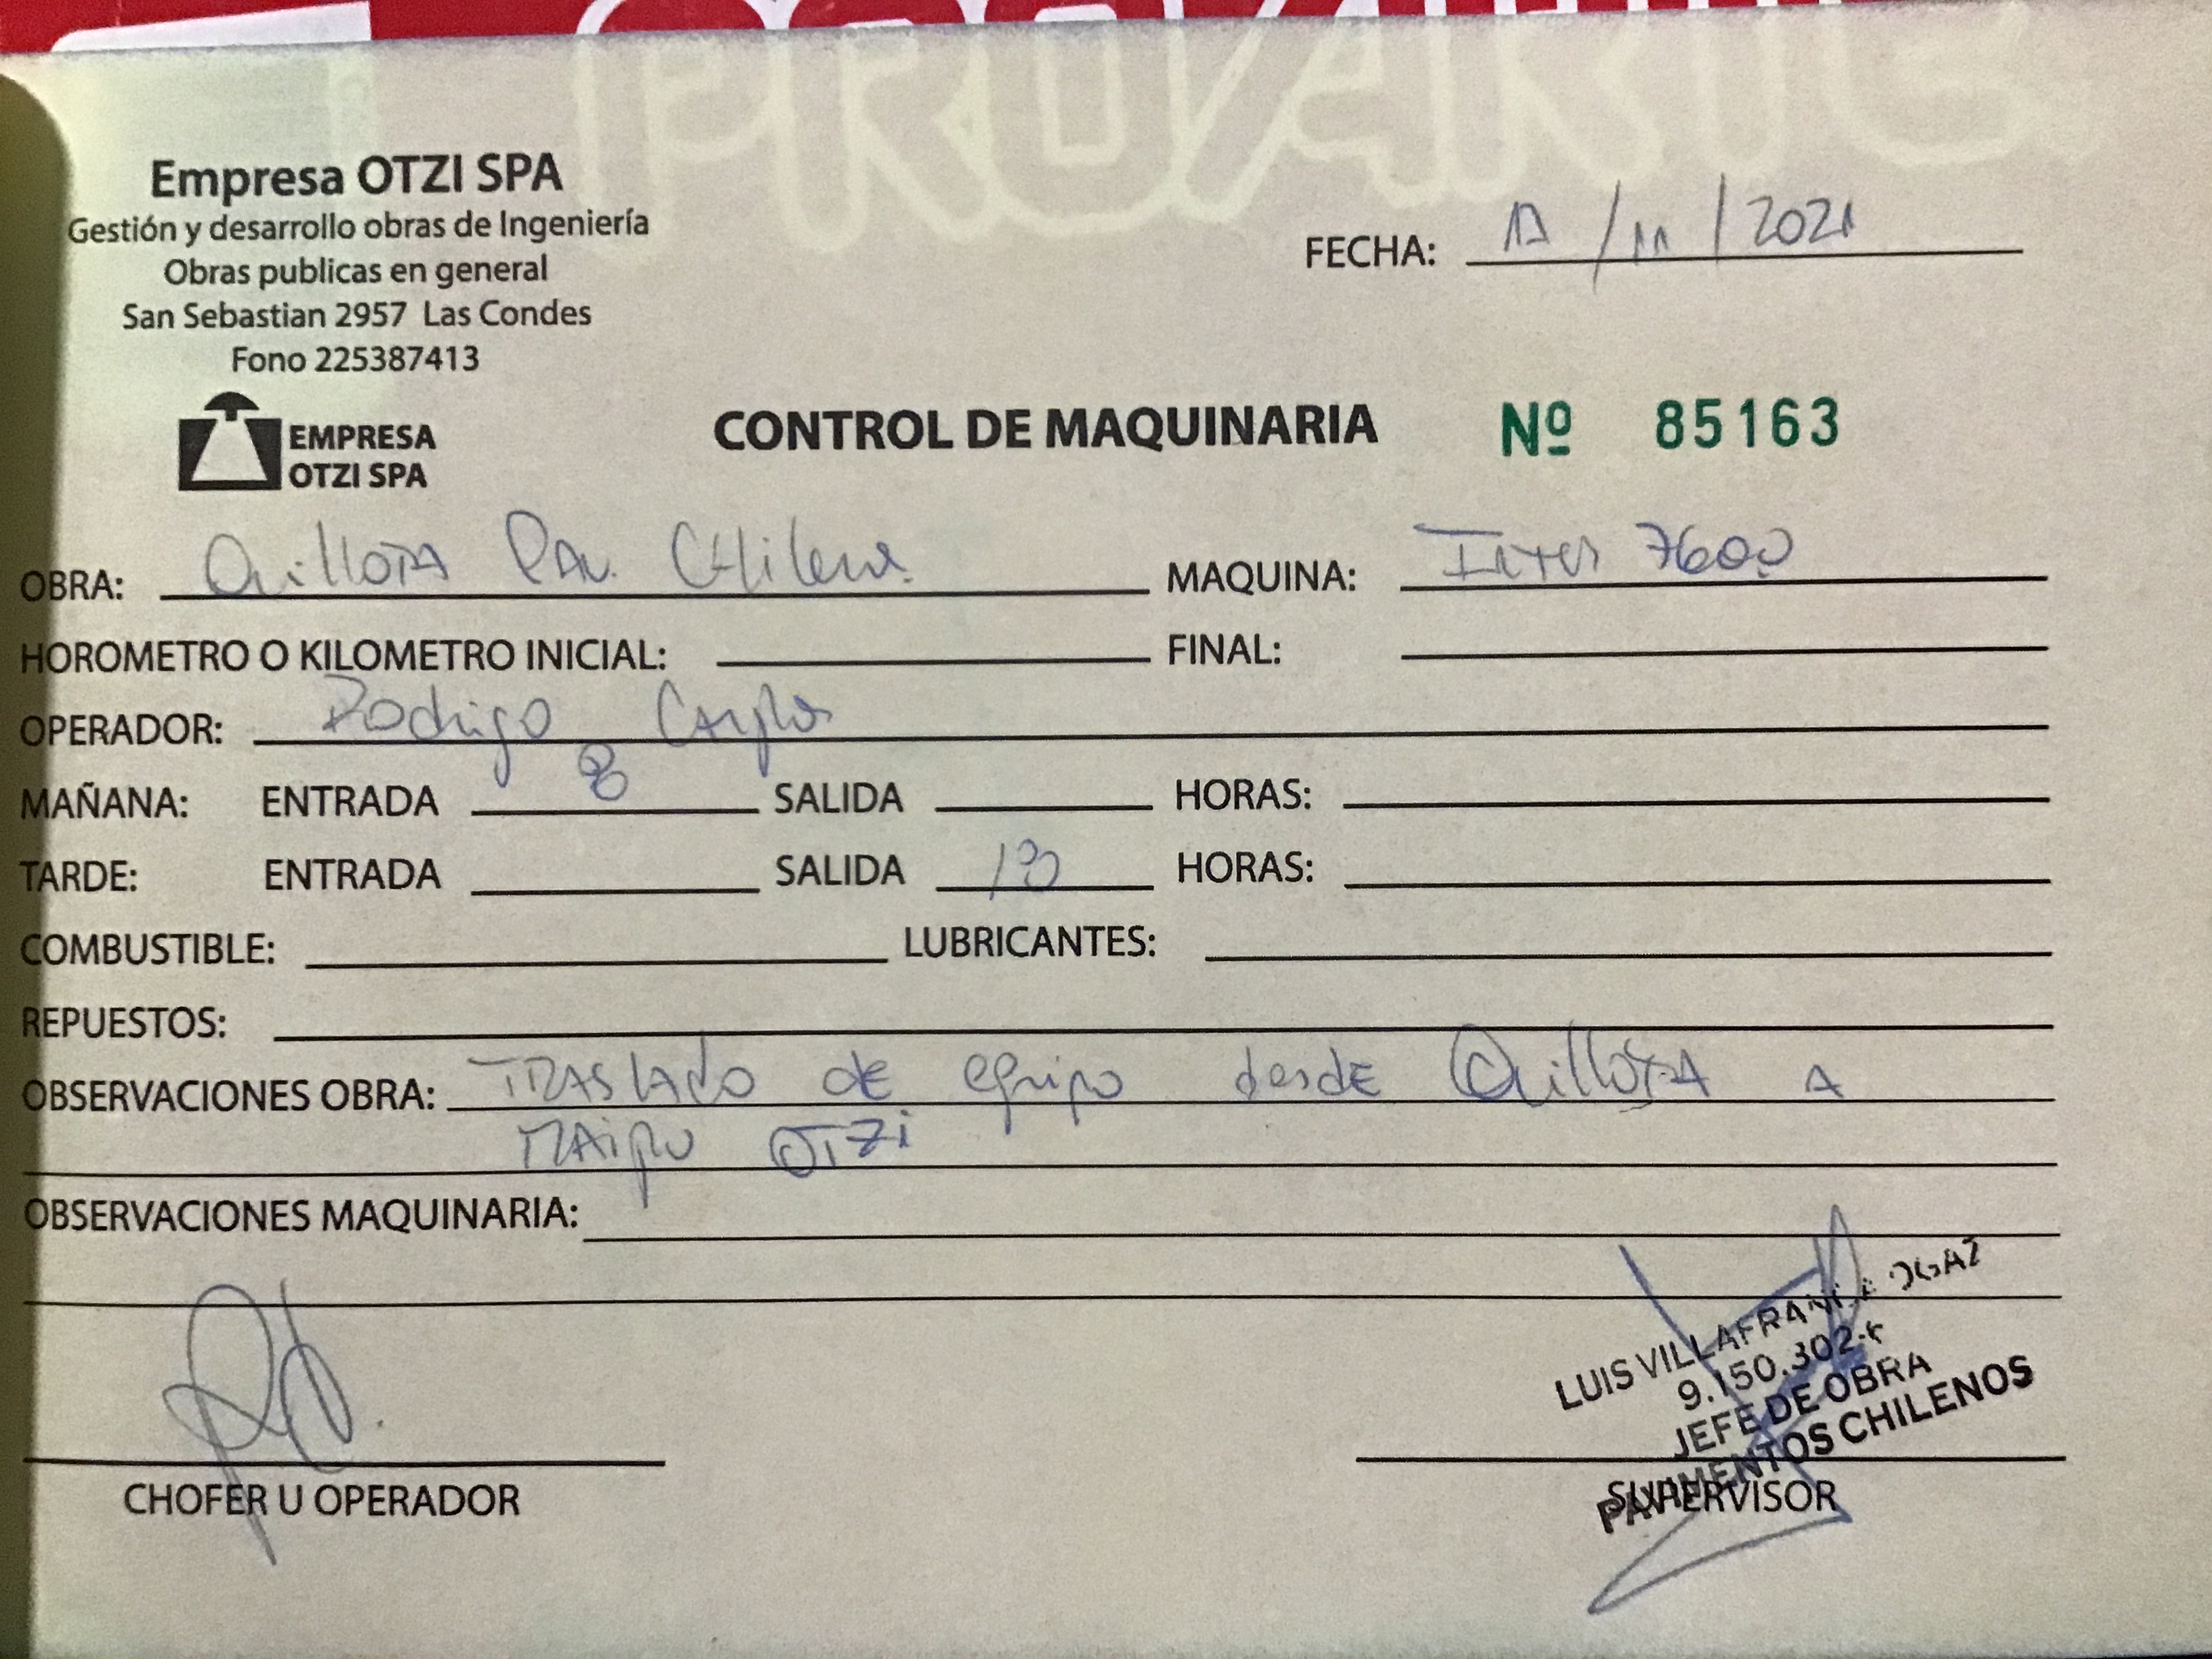 Empresa OTZI SPA
Gestión y desarrollo obras de Ingeniería
Obras publicas en general
San Sebastian 2957 Las Condes
Fono 225387413
FECHA: / 2021
EMPRESA
OTZI SPA
CONTROL DE MAQUINARIA Nº 85163
OBRA: Quillota Pav. Chilenos. MAQUINA: Inter 7600
HOROMETRO O KILOMETRO INICIAL: FINAL:
OPERADOR: Rodrigo Campos
MAÑANA: ENTRADA 8 SALIDA HORAS:
TARDE: ENTRADA SALIDA HORAS:
COMBUSTIBLE: LUBRICANTES:
REPUESTOS:
OBSERVACIONES OBRA: Traslado de equipo desde Quillota A
MAipu OTZi
OBSERVACIONES MAQUINARIA:
LUIS
9.150.302-K
JEFE DE OBRA
PAVIMENTOS CHILENOS
CHOFER U OPERADOR
SUPERVISOR